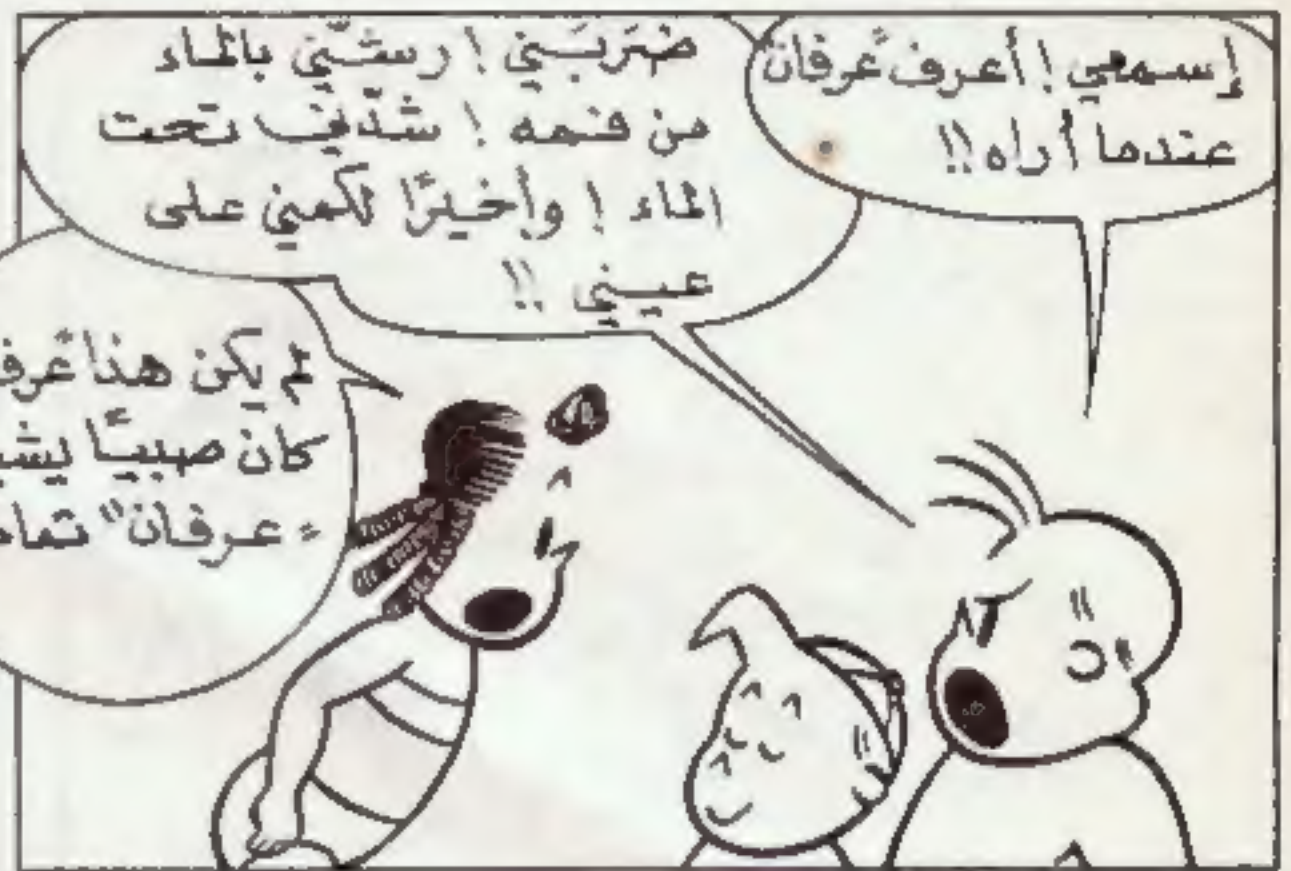 إسمعي ! أعرف "عرفان"
عندما أراه !!
ضربني ! رشّني بالماء
من فمه ! شدّني تحت
الماء ! وأخيرًا لكمني على
عيني !!
لم يكن هذا
كان صبيًا
"عرفان"